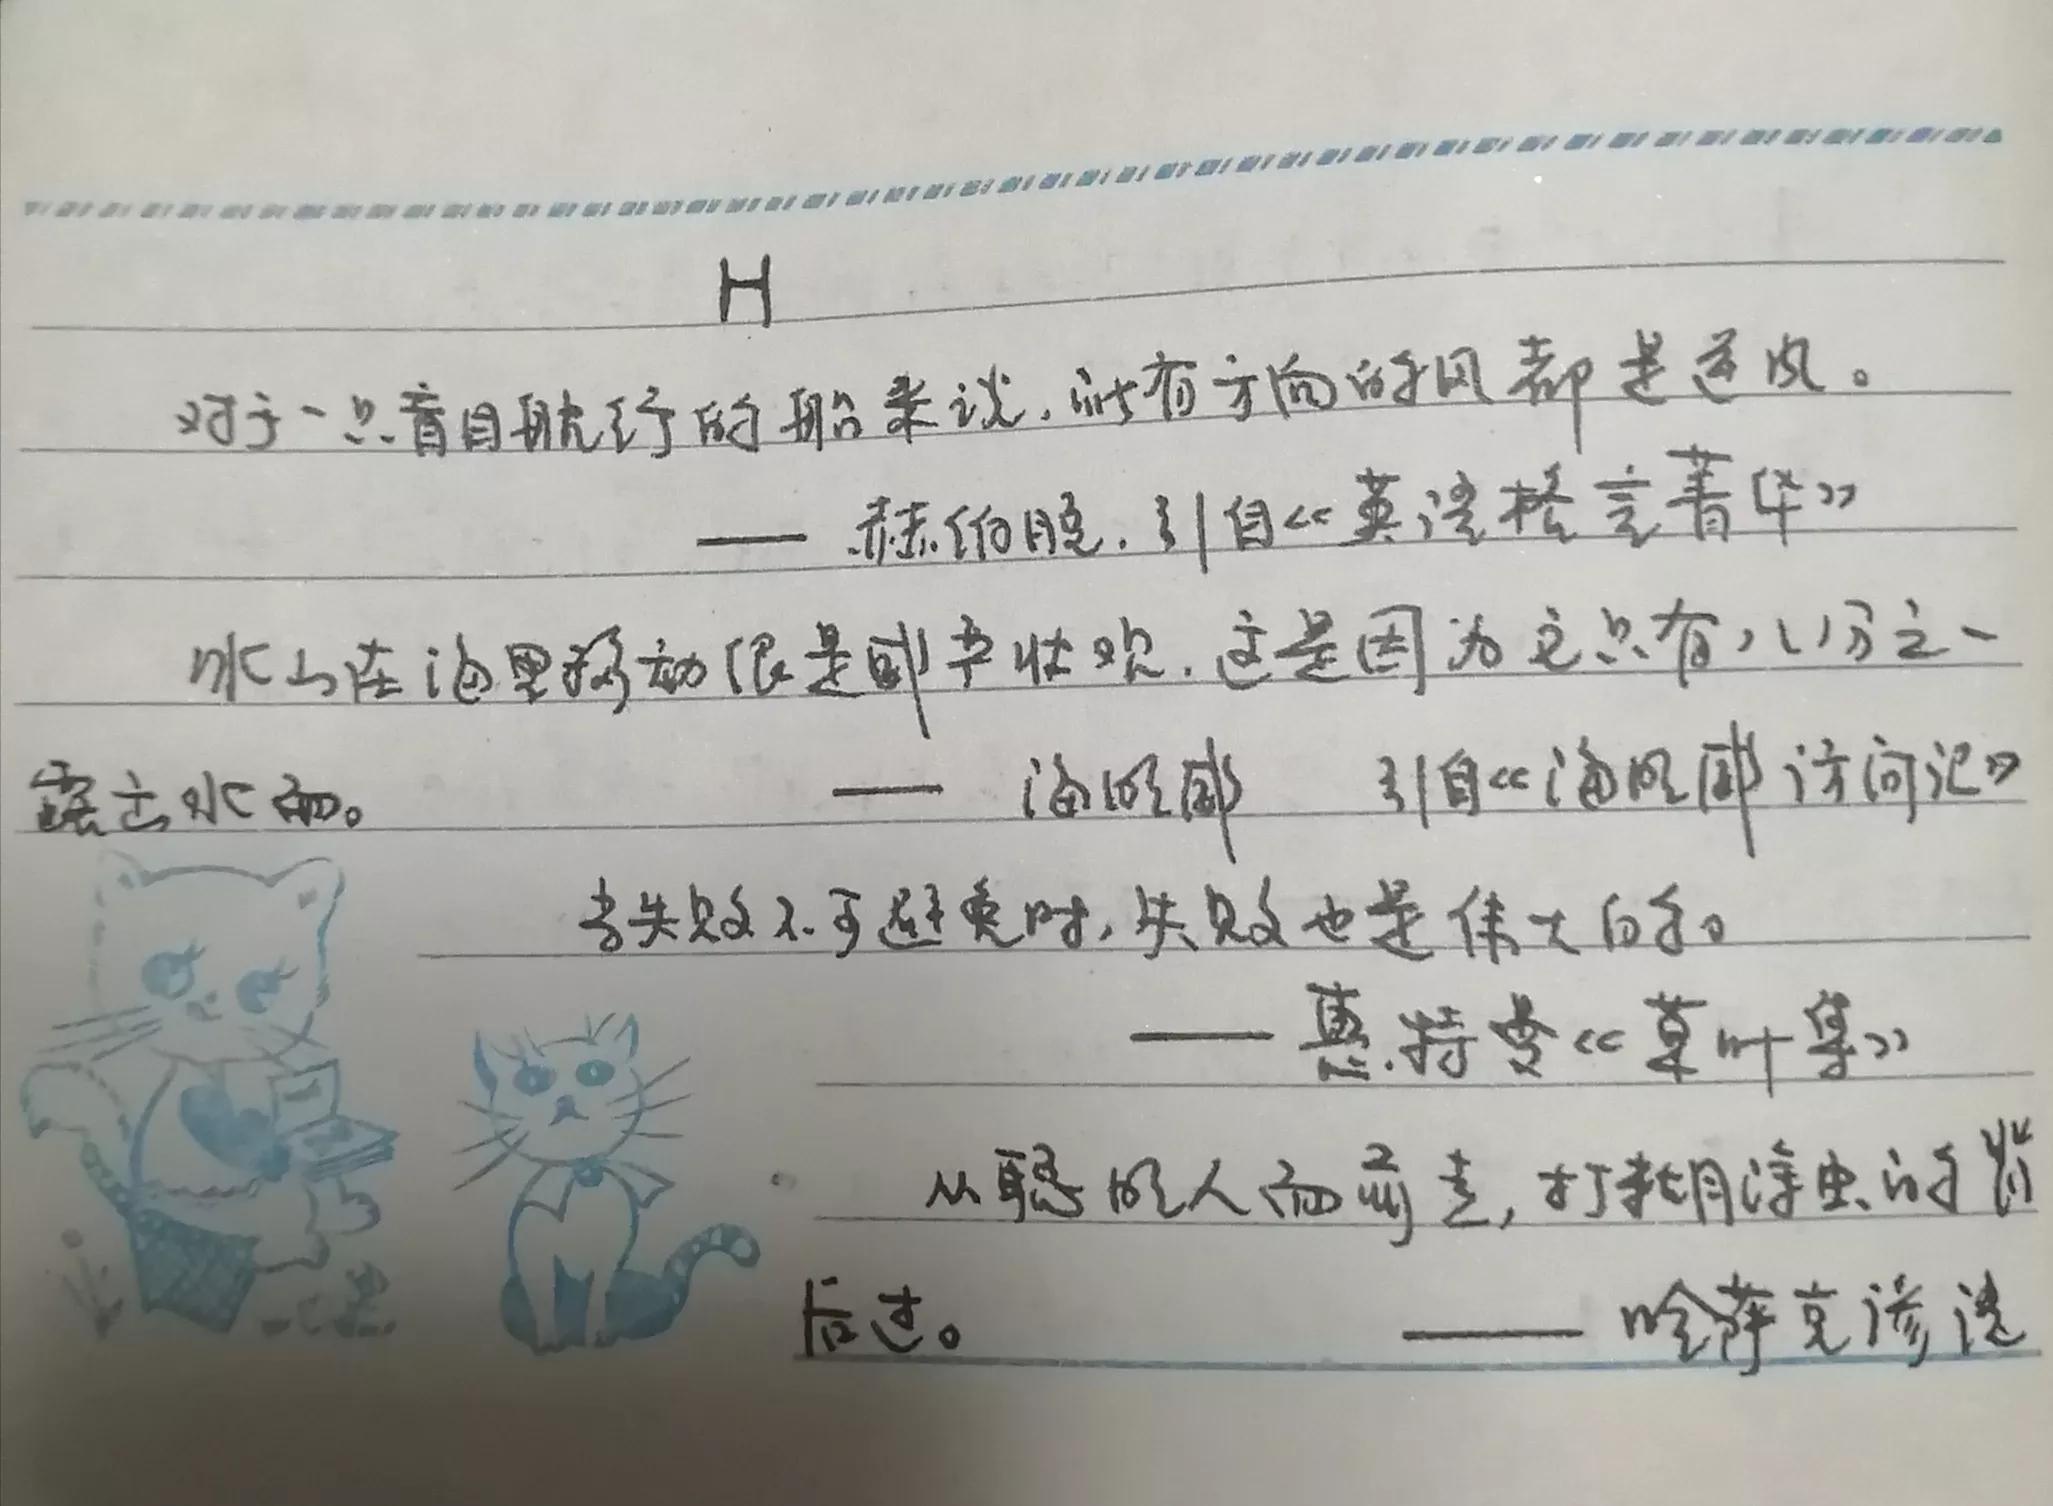 H
对于一只盲目航行的船来说,所有方向的风都是逆风。
—— 赫伯脱.引自《英语格言菁华》
冰山在海里移动很是庄严壮观.这是因为它只有八分之一
露出水面。 —— 海明威 引自《海明威访问记》
当失败不可避免时,失败也是伟大的。
—— 惠特曼《草叶集》
从聪明人面前走,打糊涂虫的背
后过。 —— 哈萨克谚语